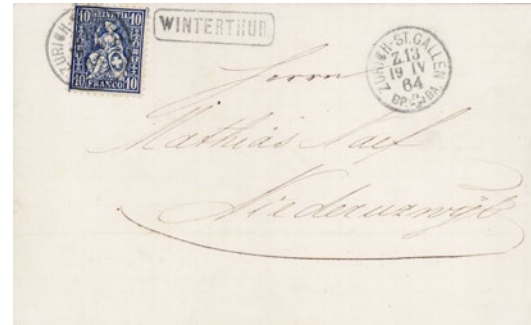 ZÜRICH-S
10 HELVETIA 10
10 FRANCO 10
WINTERTHUR
ZÜRICH-ST.GALLEN
Z.13
19 IV
64
Herrn
Mathias Naef
Niederuzwyl